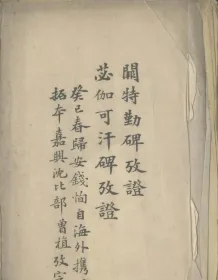 闕特勤碑攷證
苾伽可汗碑攷證
癸巳春歸安錢恂自海外攜
拓本嘉興沈比部曾植攷定